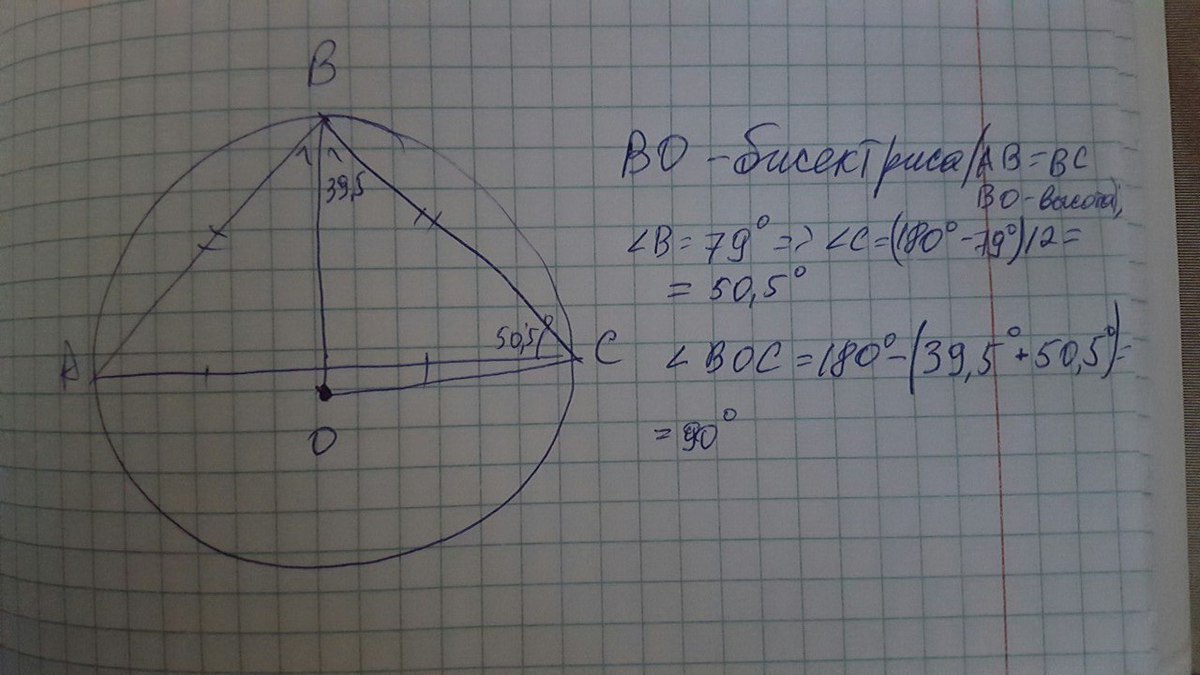 B
39,5
50,5°
A
C
O
BO - бисектриса (AB = BC
BO - высота),
∠B = 79° => ∠C = (180° - 79°)/2 =
= 50,5°
∠BOC = 180° - (39,5° + 50,5°) =
= 90°